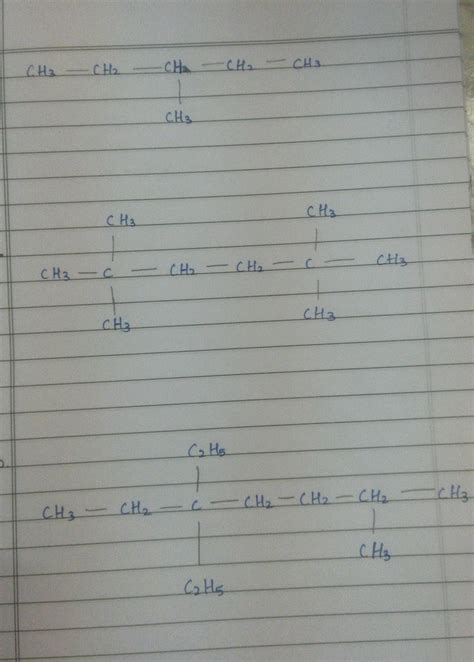 CH3 — CH2 — CH2 — CH2 — CH3
CH3
CH3 CH3
CH3 — C — CH2 — CH2 — C — CH3
CH3 CH3
C2H5
CH3 — CH2 — C — CH2 — CH2 — CH2 — CH3
CH3
C2H5